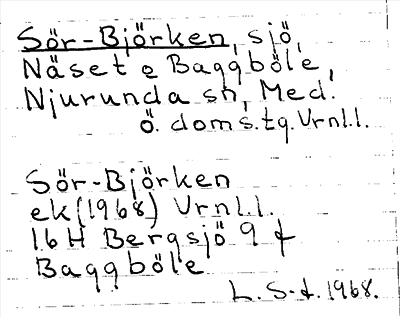 Sör-Björken, sjö,
Näset o Baggböle,
Njurunda sn, Med.
Ö. doms.tg. Vrnl.l.
Sör-Björken
ek (1968) Vrnl.l.
16H Bergsjö 9 f
Baggböle
L. S-d. 1968.